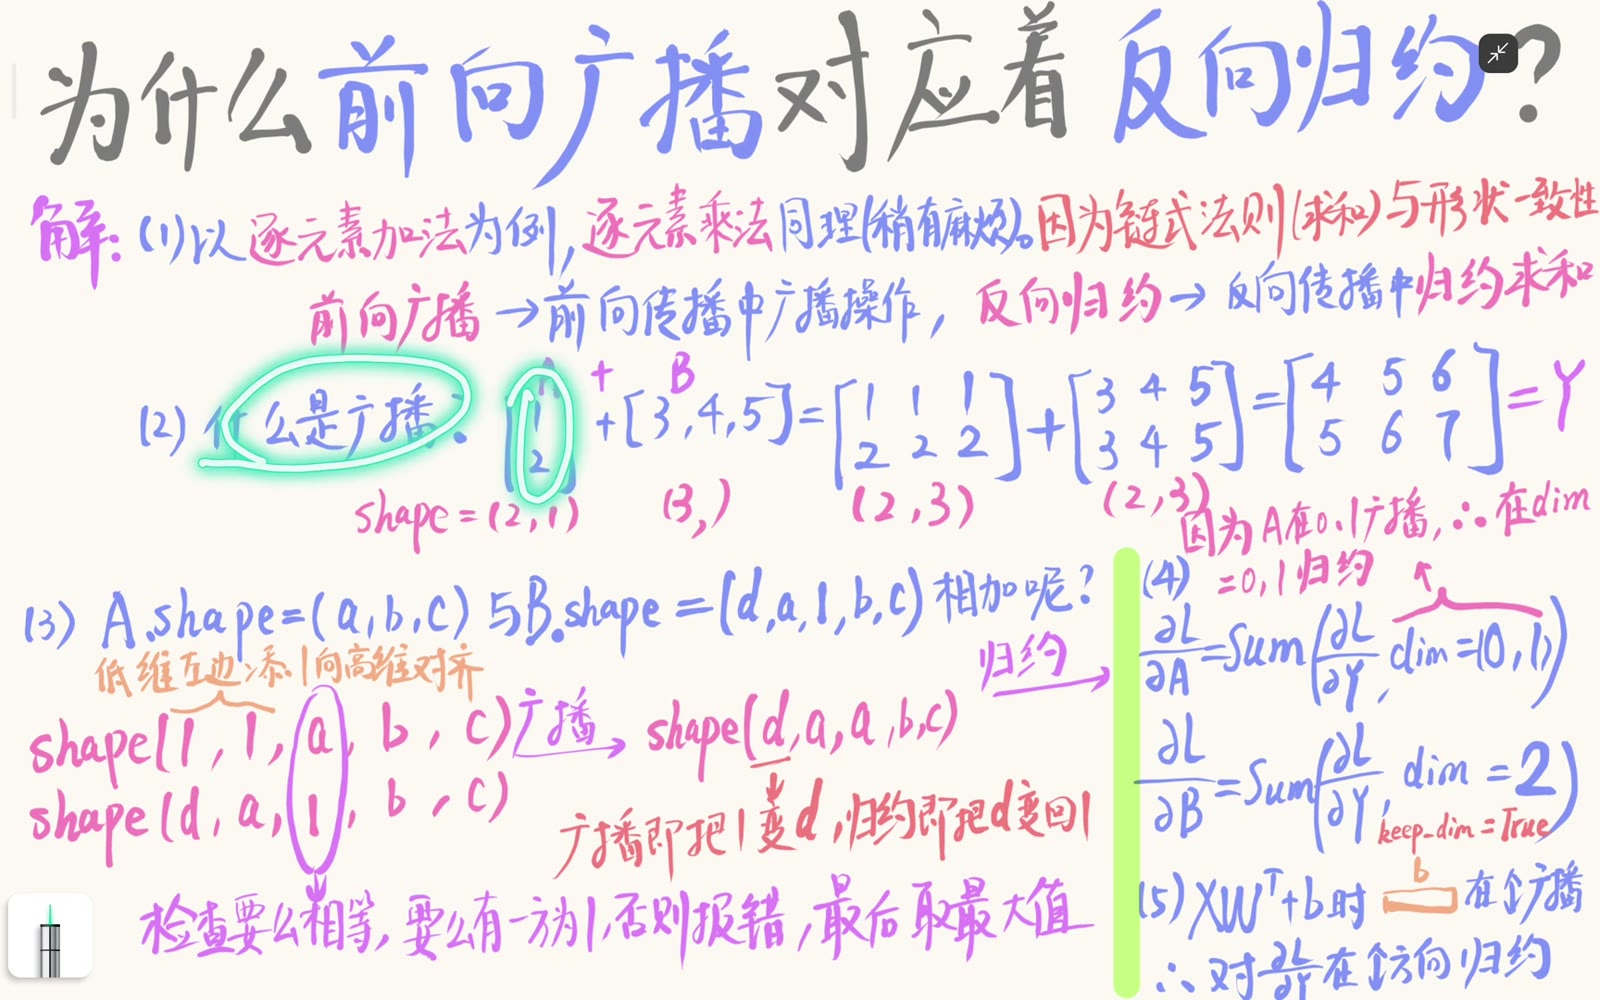 为什么前向广播对应着反向归约?
解: (1)以逐元素加法为例,逐元素乘法同理(稍有麻烦)。因为链式法则(求和)与形状一致性
前向广播→前向传播中广播操作, 反向归约→反向传播中归约求和
A + B
(2) 什么是广播: [1 2] + [3,4,5] = [1 1 1 2 2 2] + [3 4 5 3 4 5] = [4 5 6 5 6 7] = Y
shape=(2,1) (3,) (2,3) (2,3)
(3) A.shape=(a,b,c) 与B.shape=(d,a,1,b,c)相加呢?
低维左边添1向高维对齐
shape(1, 1, a, b, c) 广播→ shape(d,a,a,b,c)
归约→
shape(d, a, 1, b, c)
广播即把1变d,归约即把d变回1
检查要么相等,要么有一方为1,否则报错,最后取最大值
因为A在0、1广播,∴在dim
=0,1归约
(4)
∂L/∂A=Sum(∂L/∂Y, dim=(0,1))
∂L/∂B=Sum(∂L/∂Y, dim=2)
keep-dim=True
b
(5) XWᵀ+b时 在↕广播
∴对∂L/∂Y在↕方向归约